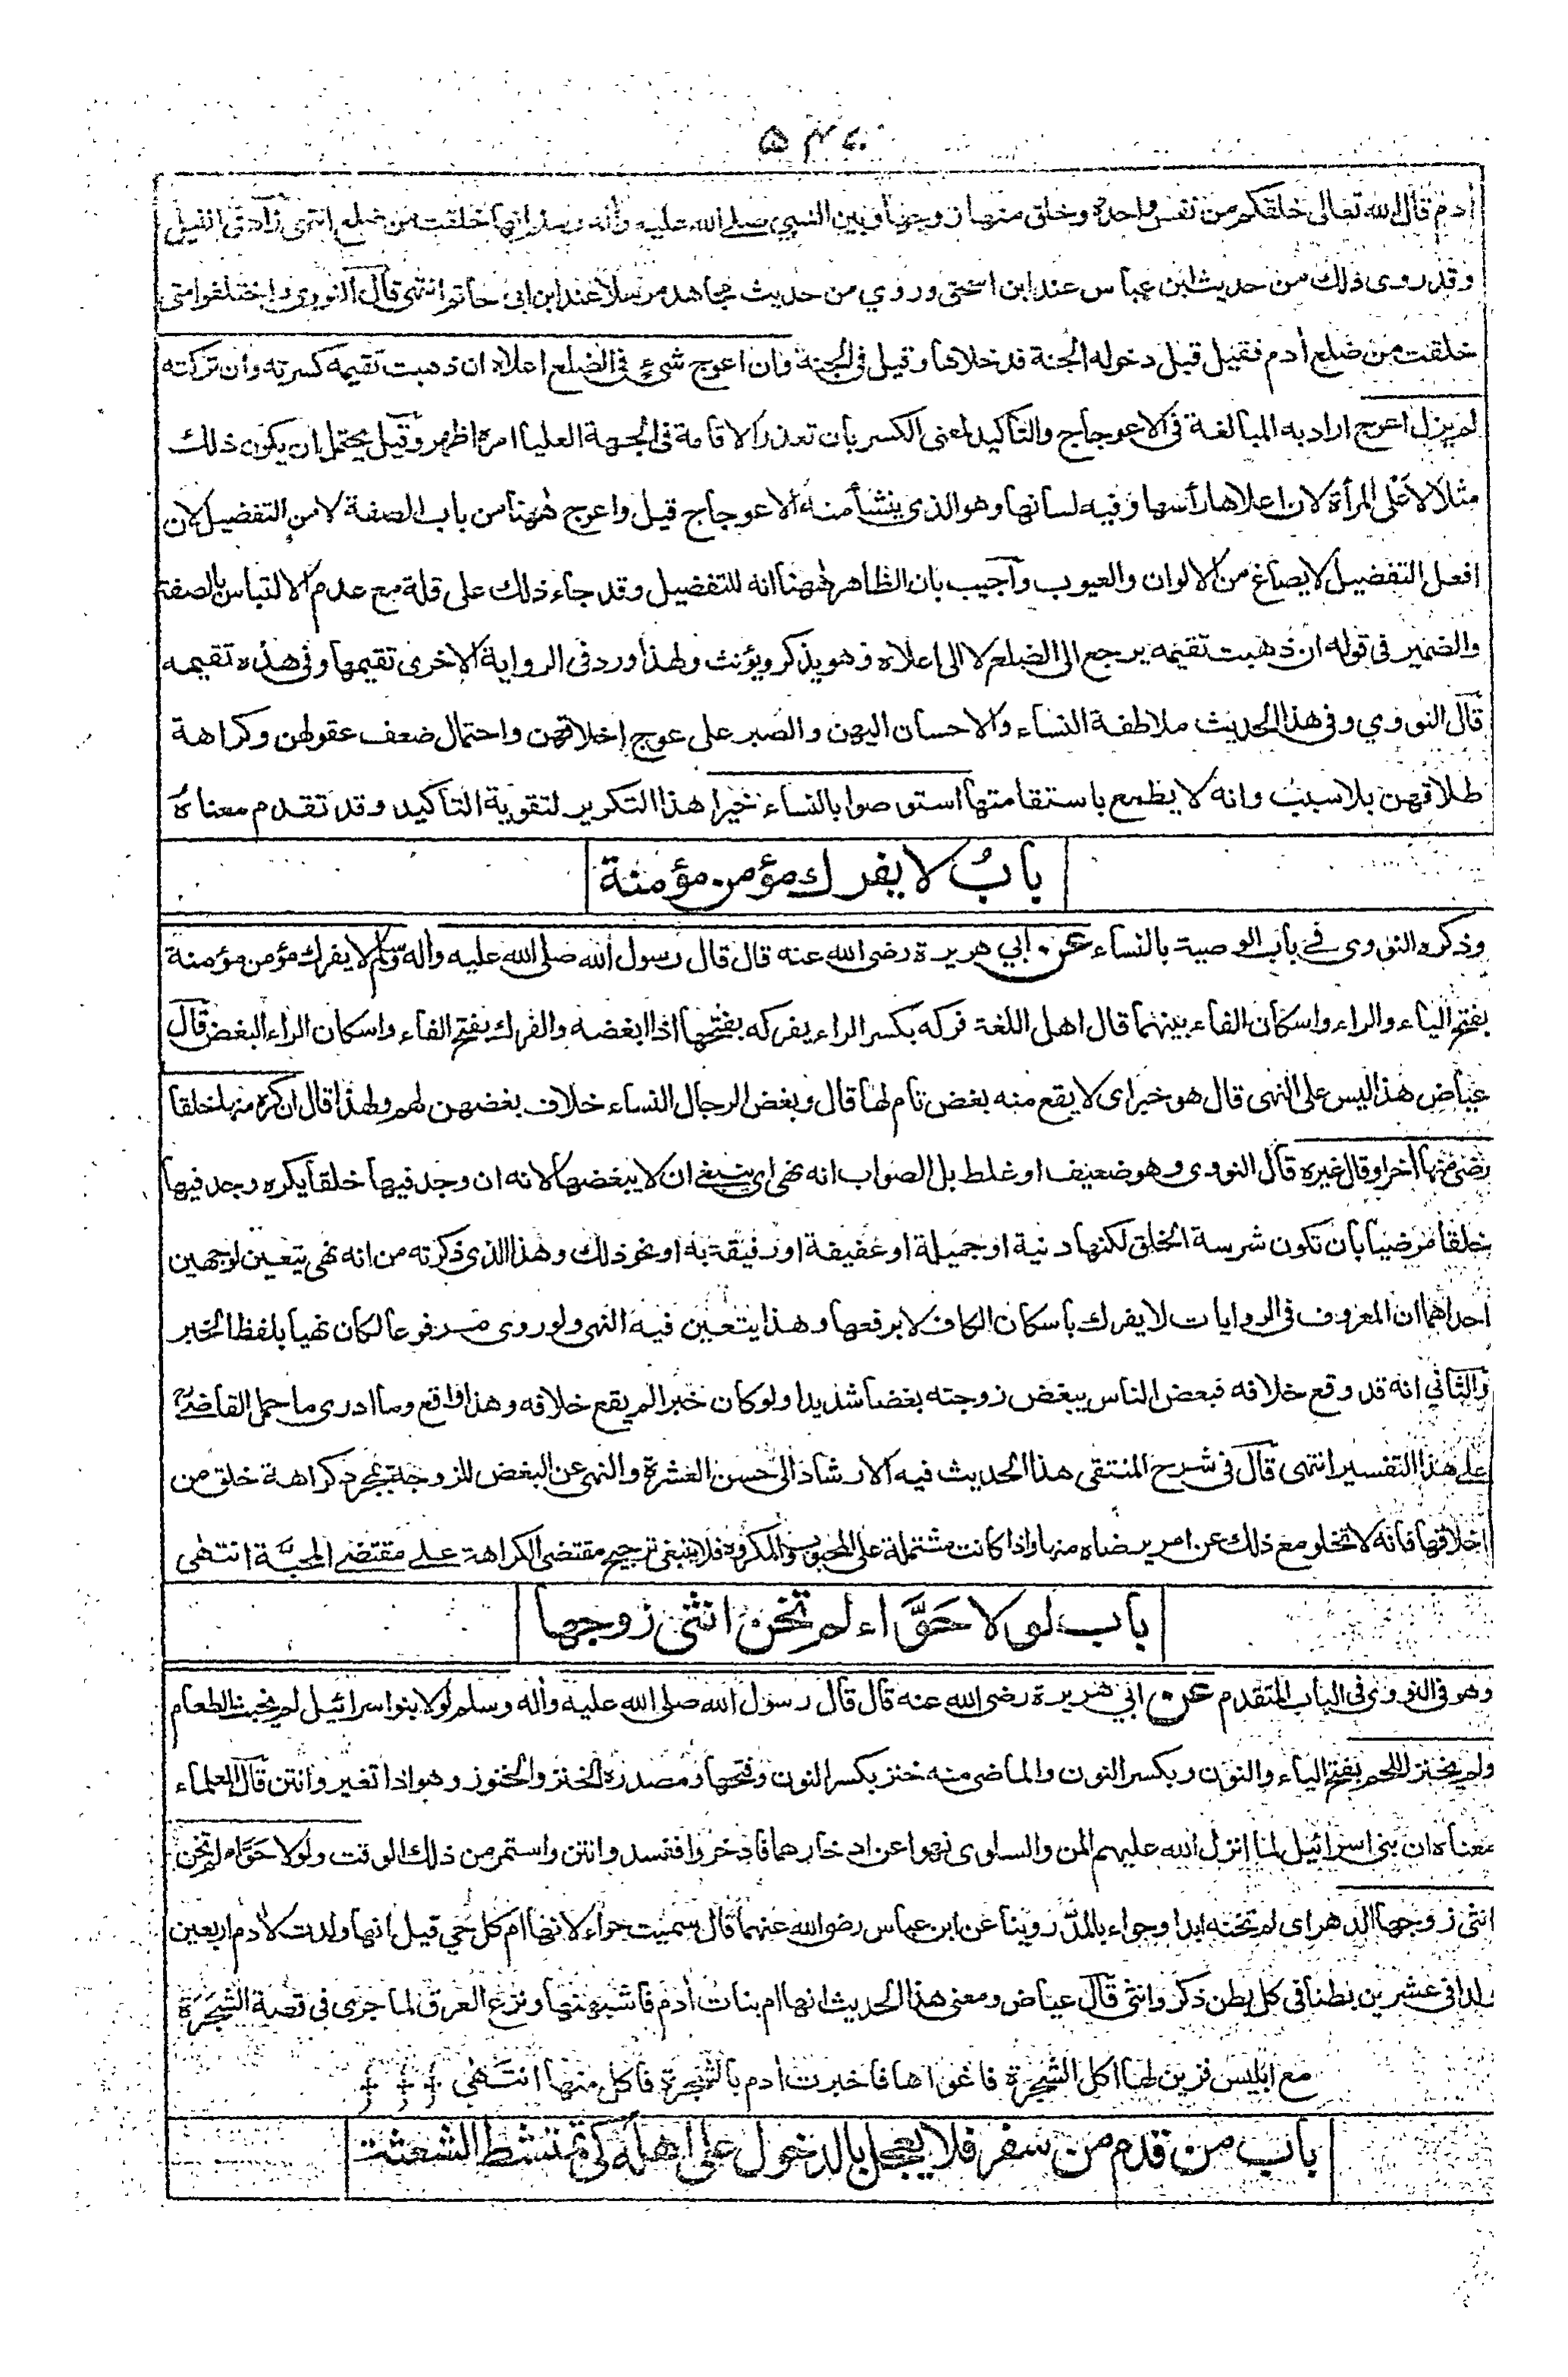 ۵۴۷
أدم قال الله تعالى خلقكم من نفس واحدة وخلق منها زوجها وبين النبي صلے الله عليه وأله وسلم انها خلقت من ضلع انتهى زاد فى النيل
وقد روى ذلك من حديث ابن عباس عند ابن اسحق وروي من حديث مجاهد مرسلا عند ابن ابى حاتم انتهى قال النووى واختلفوا متى
خلقت من ضلع أدم فقيل قبل دخوله الجنة فدخلاها وقيل فى الجنة وان اعوج شئ فى الضلع اعلاه ان ذهبت تقيمه كسرته وان تركته
لم يزل اعوج اراد به المبالغة فى الاعوجاج والتأكيد لمعنى الكسر بان تعذر الاقامة فى الجهة العليا امره اظهر وقيل يحتمل ان يكون ذلك
مثلا لاعلى المرأة لان اعلاها رأسها وفيه لسانها وهو الذى ينشأ منه الاعوجاج قيل واعوج ههنا من باب الصفة لا من التفضيل لان
افعل التفضيل لا يصاغ من الالوان والعيوب وأجيب بان الظاهر ههنا انه للتفضيل وقد جاء ذلك على قلة مع عدم الالتباس بالصفة
والضمير فى قوله ان ذهبت تقيمه يرجع الى الضلع لا الى اعلاه وهو يذكر ويؤنث ولهذا ورد فى الرواية الاخرى تقيمها وفى هذه تقيمه
قال النووي وفى هذا الحديث ملاطفة النساء والاحسان اليهن والصبر على عوج اخلاقهن واحتمال ضعف عقولهن وكراهة
طلاقهن بلا سبب وانه لا يطمع باستقامتها استوصوا بالنساء خيرا هذا التكرير لتقوية التأكيد وقد تقدم معناه
باب لا يفرك مؤمن مؤمنة
وذكره النووى فے باب الوصية بالنساء عن ابي هريرة رضى الله عنه قال قال رسول الله صلى الله عليه وأله وسلم لا يفرك مؤمن مؤمنة
بفتح الياء والراء واسكان الفاء بينهما قال اهل اللغة فركه بكسر الراء يفركه بفتحها اذا ابغضه والفرك بفتح الفاء واسكان الراء البغض قال
عياض هذا ليس على النهى قال هو خبر اى لا يقع منه بغض تام لها قال وبغض الرجال النساء خلاف بغضهن لهم ولهذا قال ان كره منها خلقا
رضى منها أخر او قال غيره قال النووى وهو ضعيف او غلط بل الصواب انه نهى اى ينبغى ان لا يبغضها لانه ان وجد فيها خلقا يكره وجد فيها
خلقا مرضيا بان تكون شرسة الخلق لكنها دينة او جميلة او عفيفة او رفيقة به او نحو ذلك وهذا الذى ذكرته من انه نهى يتعين لوجهين
احداهما ان المعروف فى الروايات لا يفرك باسكان الكاف لا برفعها وهذا يتعين فيه النهى ولو روى مرفوعا لكان نهيا بلفظ الخبر
والثاني انه قد وقع خلافه فبعض الناس يبغض زوجته بغضا شديدا ولو كان خبرا لم يقع خلافه وهذا واقع وما ادرى ما حمل القاضے
على هذا التفسير انتهى قال فى شرح المنتقى هذا الحديث فيه الارشاد الى حسن العشرة والنهى عن البغض للزوجة بمجرد كراهة خلق من
اخلاقها فانه لا تخلو مع ذلك عن امر يرضاه منها واذا كانت مشتملة على المحبوب والمكروه فلا ينبغى ترجيح مقتضى الكراهة علے مقتضے المحبَّة انتهى
باب لولا حَوَّاء لم تخن انثى زوجها
وهو فى النووى فى الباب المتقدم عن ابي هريرة رضى الله عنه قال قال رسول الله صلى الله عليه وأله وسلم لولا بنو اسرائيل لم يخبث الطعام
ولم يخنز اللحم بفتح الياء والنون وبكسر النون والماضى منه خنز بكسر النون وفتحها ومصدره الخنز والخنوز وهو اذا تغير وانتن قال العلماء
معناه ان بنى اسرائيل لما انزل الله عليهم المن والسلوى نهوا عن ادخارهما فادخروا ففسد وانتن واستمر من ذلك الوقت ولولا حَوَّاء لم تخن
انثى زوجها الدهر اى لم تخنه ابدا وحواء بالمدّ روينا عن ابن عباس رضى الله عنهما قال سميت حواء لانها ام كل حي قيل انها ولدت لأدم اربعين
ولدا فى عشرين بطنا فى كل بطن ذكر وانثى قال عياض ومعنى هذا الحديث انها ام بنات أدم فاشبهنها ونزع العرق لما جرى فى قصة الشجرة
مع ابليس فزين لها اكل الشجرة فاغواها فاخبرت أدم بالشجرة فاكل منها انتهى
باب من قدم من سفر فلا يعجل بالدخول على اهله كى تمتشط الشعثة